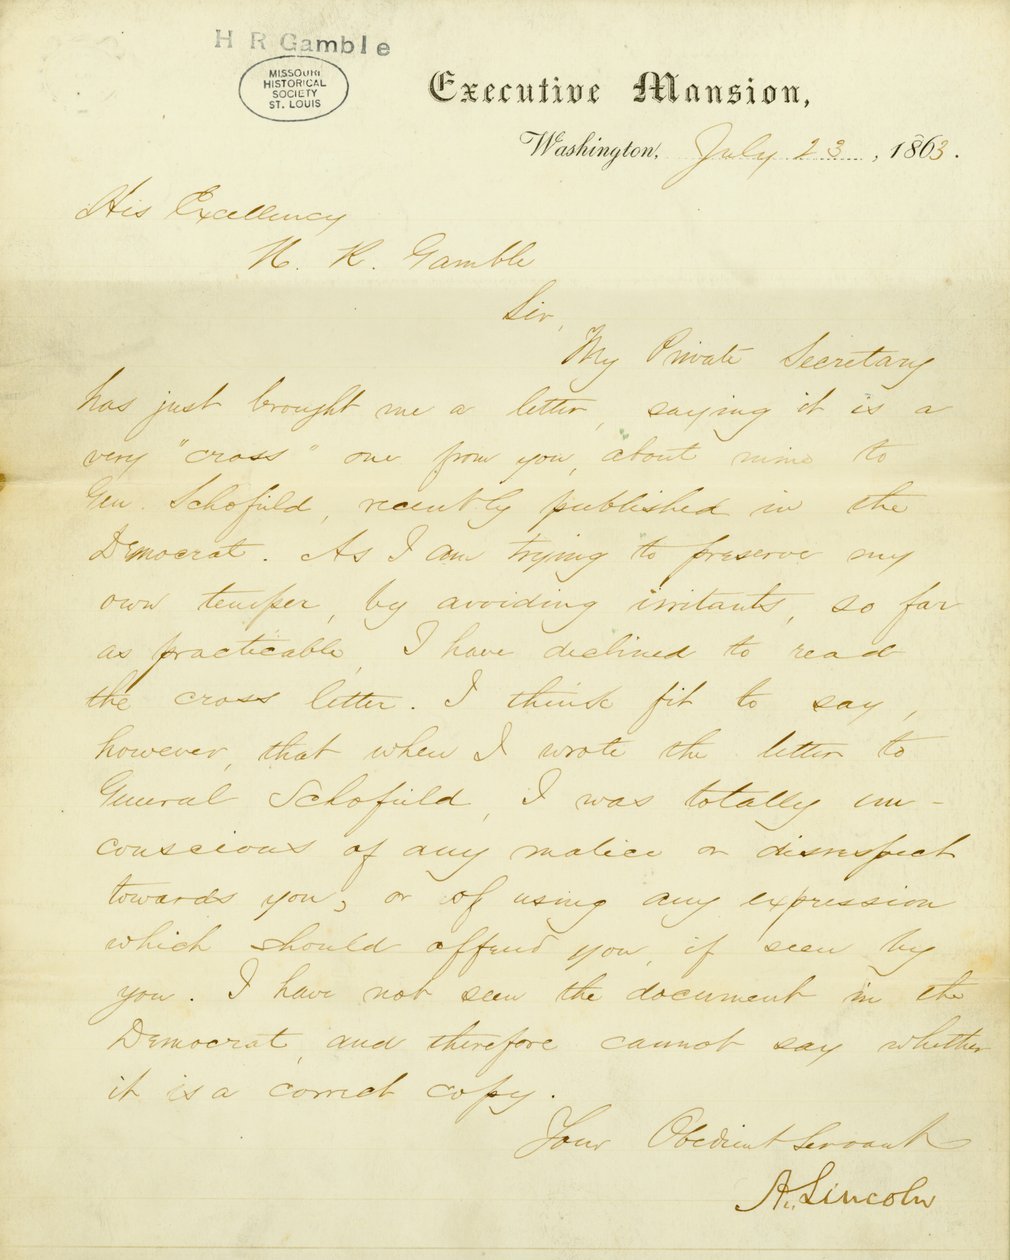 H R Gamble
MISSOURI
HISTORICAL
SOCIETY
ST. LOUIS
Executive Mansion,
Washington, July 23, 1863.
His Excellency
H. R. Gamble
Sir,
My Private Secretary
has just brought me a letter, saying it is a
very "cross" one from you, about mine to
Gen. Schofield, recently published in the
Democrat. As I am trying to preserve my
own temper, by avoiding irritants, so far
as practicable, I have declined to read
the cross letter. I think fit to say,
however, that when I wrote the letter to
General Schofield, I was totally un-
conscious of any malice or disrespect
towards you, or of using any expression
which should offend you, if seen by
you. I have not seen the document in the
Democrat, and therefore cannot say whether
it is a correct copy.
Your Obedient Servant
A. Lincoln